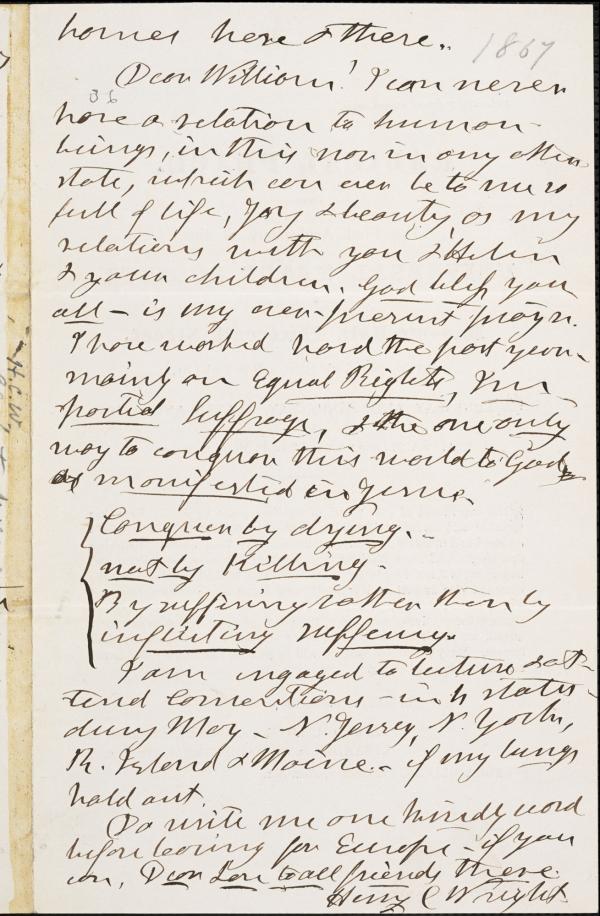 homes here & there..
1867
Dear William! I can never
36
have a relation to human
beings, in this nor in any other
state, which can ever be to me so
full of life, Joy & beauty, as my
relations with you & Helen
& your children. God bless you
all — is my ever-present prayer.
I have worked hard the past year —
mainly on Equal Rights, Im-
partial Suffrage, & the one only
way to conquer this world to God
as manifested in Jesus.
Conquer by dying. —
not by Killing. —
By suffering rather than by
inflicting suffering.
I am engaged to lecture & at-
tend Conventions — in 4 states
during May — N. Jersey, N. York,
R. Island & Maine. — if my lungs
hold out.
Do write me one kindly word
before leaving for Europe — if you
can. Dear Love to all friends there.
Henry C Wright.
H.C.W.